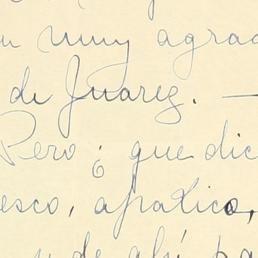 muy agrad
de Juarez. —
Pero ¿ que dic
esco, apatico,
y de ahí pa